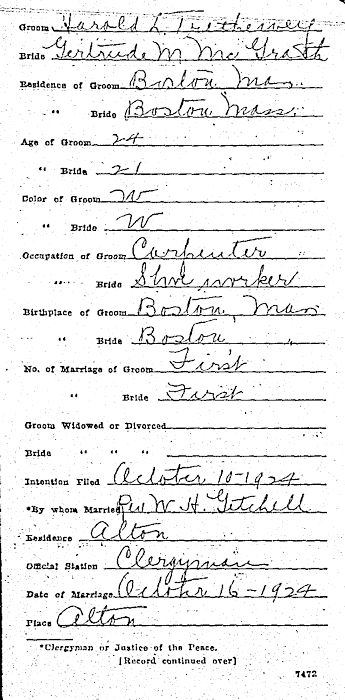 Groom Harold L Trethewey
Bride Gertrude M McGrath
Residence of Groom Boston Mass
" Bride Boston Mass.
Age of Groom 24
" Bride 21
Color of Groom W
" Bride W
Occupation of Groom Carpenter
" Bride Shoe worker
Birthplace of Groom Boston, Mass
" Bride Boston "
No. of Marriage of Groom First
" Bride First
Groom Widowed or Divorced
Bride " " "
Intention Filed October 10-1924
*By whom Married Rev W. H. Getchell
Residence Alton
Official Station Clergyman
Date of Marriage October 16-1924
Place Alton
*Clergyman or Justice of the Peace.
[Record continued over]
7472